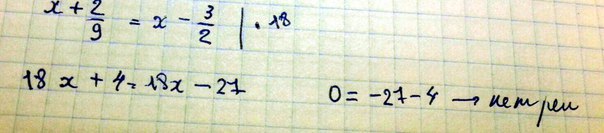 x + 2/9 = x - 3/2 | · 18
18x + 4 = 18x - 27
0 = -27 - 4 → нет реш